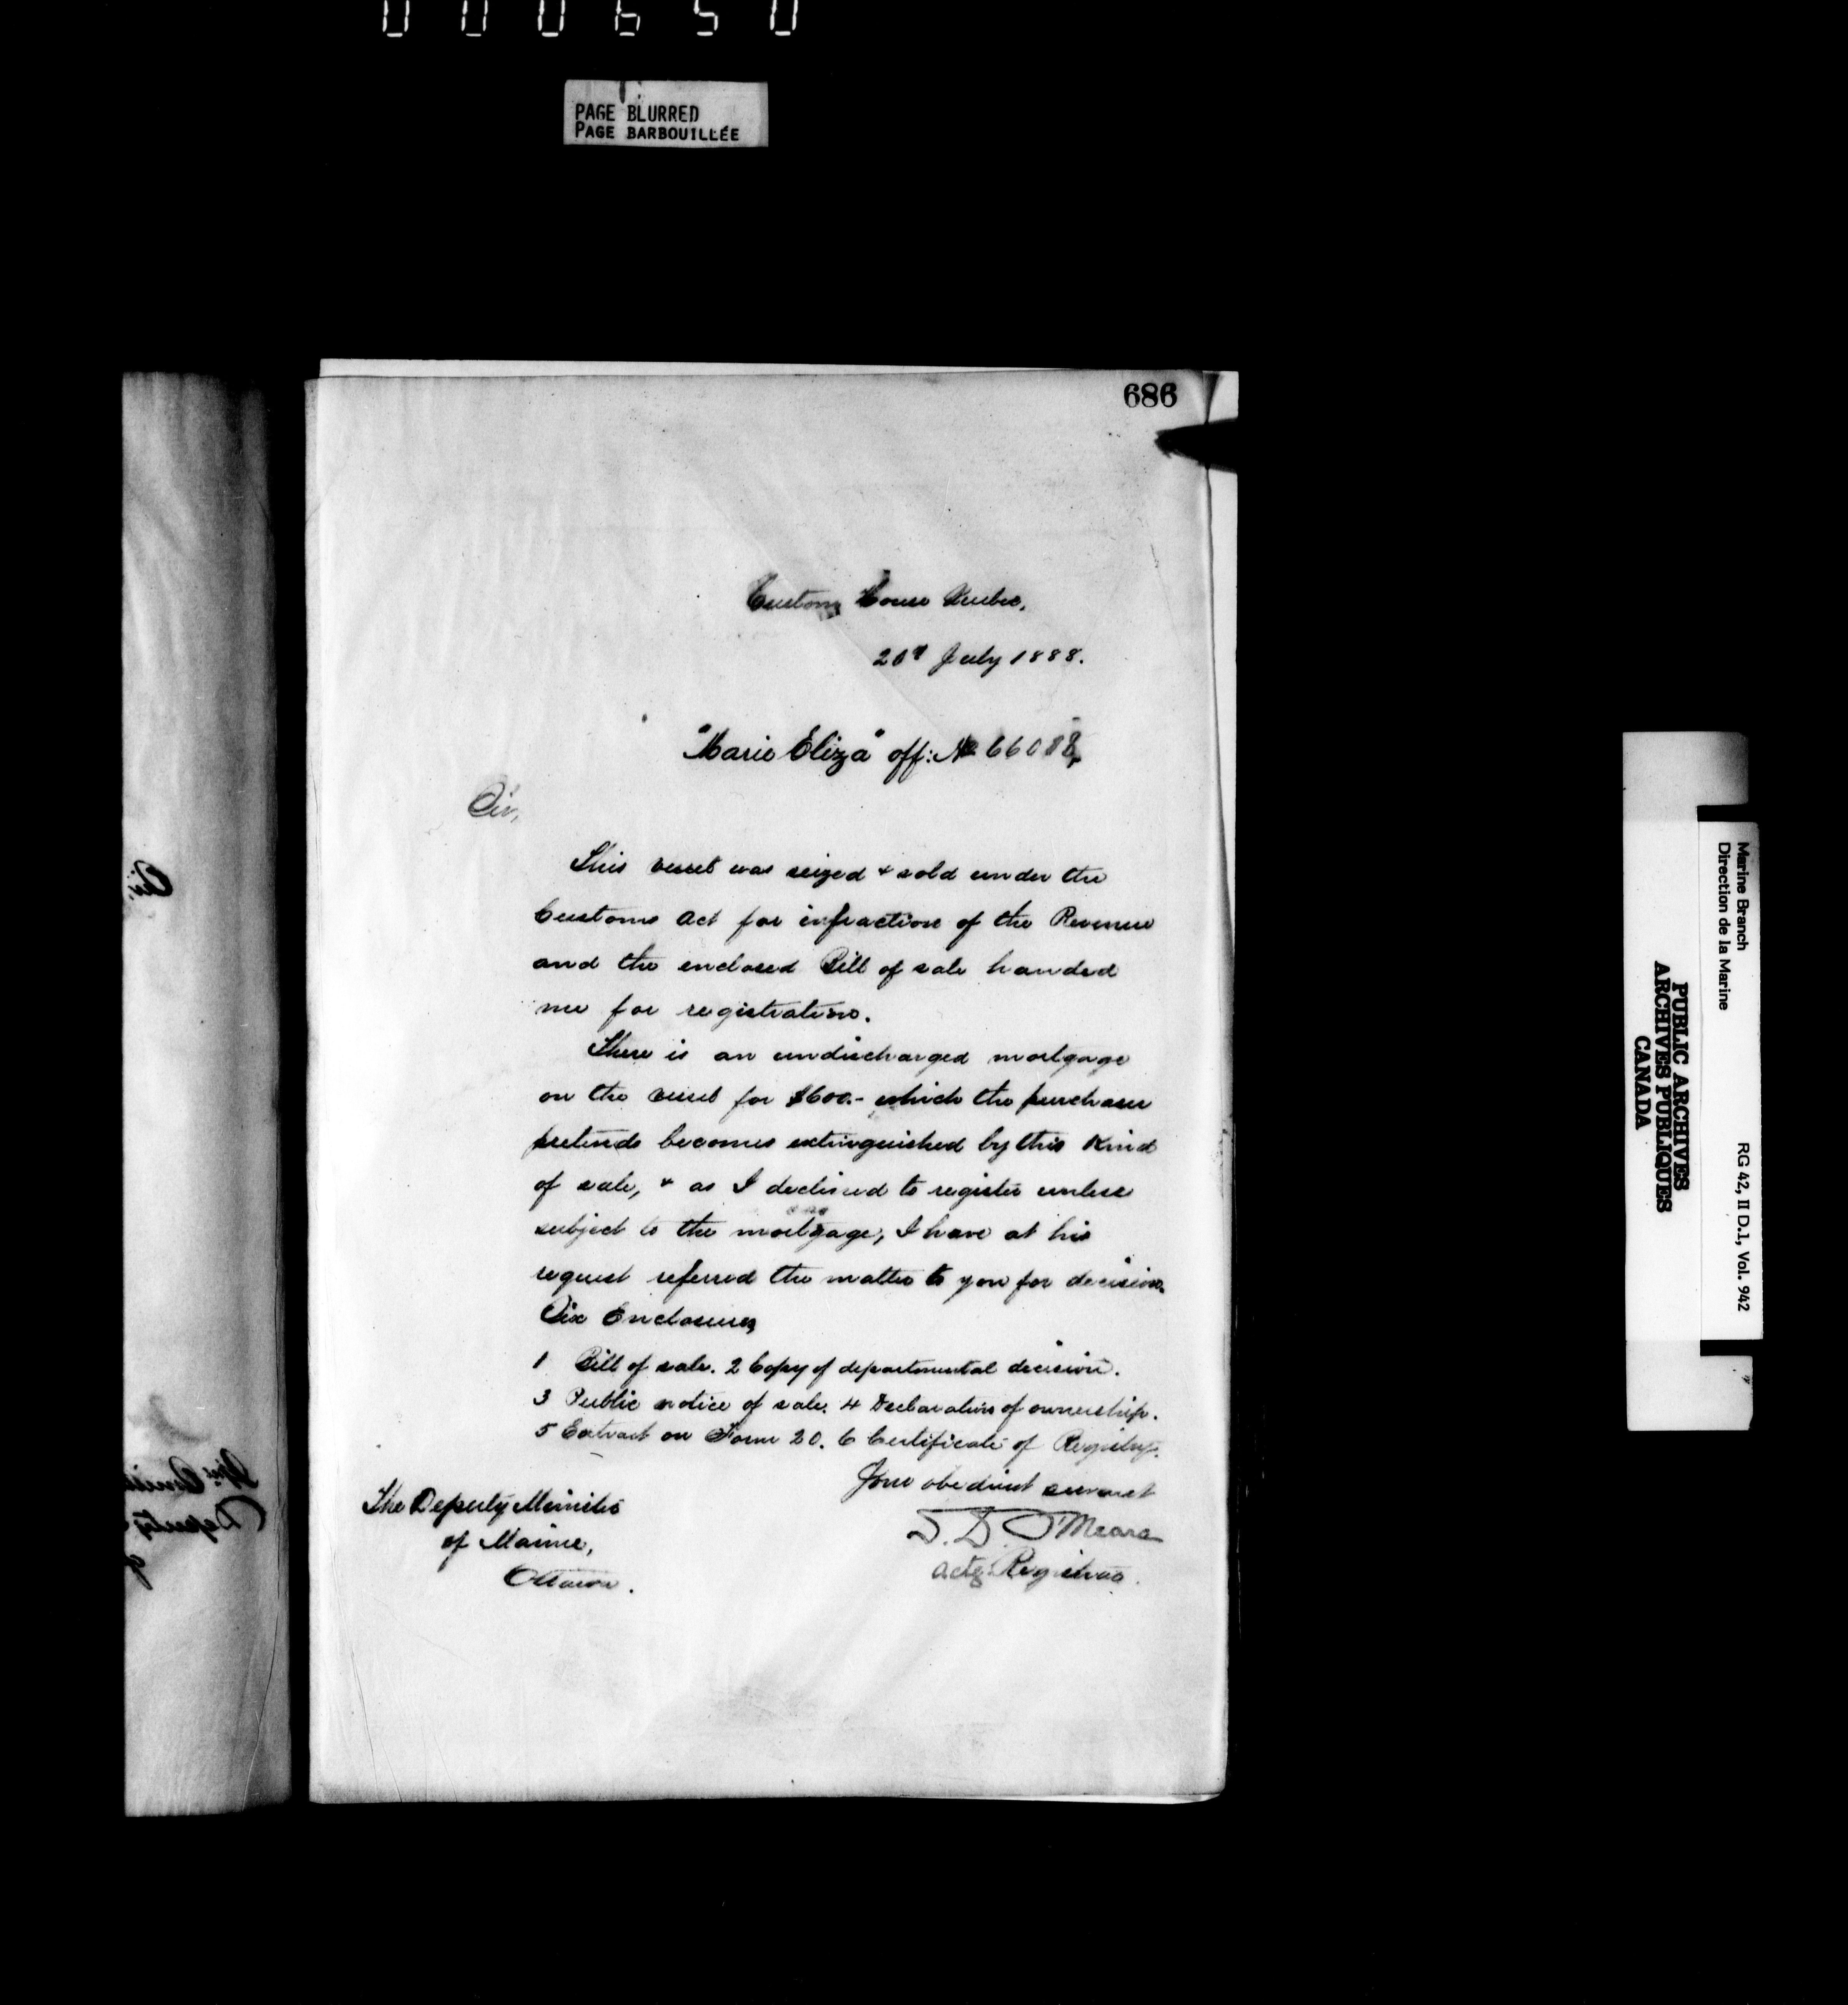 000650
PAGE BLURRED
PAGE BARBOUILLÉE
686
Custom House Quebec,
20th July 1888.
"Marie Eliza" off: No 66088,
Sir,
This vessel was seized & sold under the
Customs Act for infraction of the Revenue
and the enclosed Bill of sale handed
me for registration.
There is an undischarged mortgage
on the vessel for $600.- which the purchaser
pretends becomes extinguished by this kind
of sale, & as I declined to register unless
subject to the mortgage, I have at his
request referred the matter to you for decision.
Six Enclosures
1 Bill of sale. 2 Copy of departmental decision.
3 Public notice of sale. 4 Declaration of ownership.
5 Extract on Form 20. 6 Certificate of Registry.
Your obedient servant
J. D. O'Meara
Actg. Registrar.
The Deputy Minister
of Marine,
Ottawa.
Marine Branch
Direction de la Marine
RG 42, II D.1, Vol. 942
PUBLIC ARCHIVES
ARCHIVES PUBLIQUES
CANADA